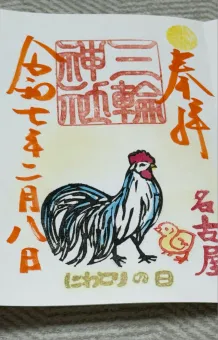 奉拝
三輪
神社
名古屋
令和七年二月八日
にわとりの日